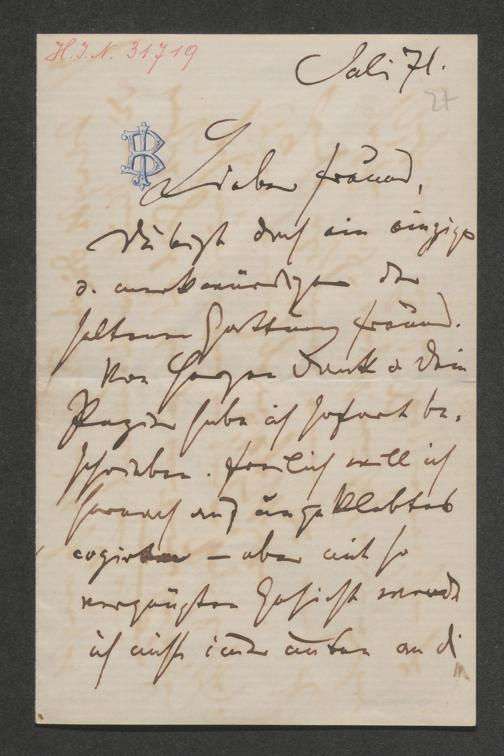 H.I.N. 31719
Juli 71.
27
Lieber Freund,
Du bist doch ein einziger
u. merkwürdiger der
seltenen Gattung Freund.
Von Herzen Dank u Dein
Papier habe ich sofort be-
schrieben. Freilich will ich
hernach auf
– aber mit so
vergnügtem Gesicht werde
ich nicht an di